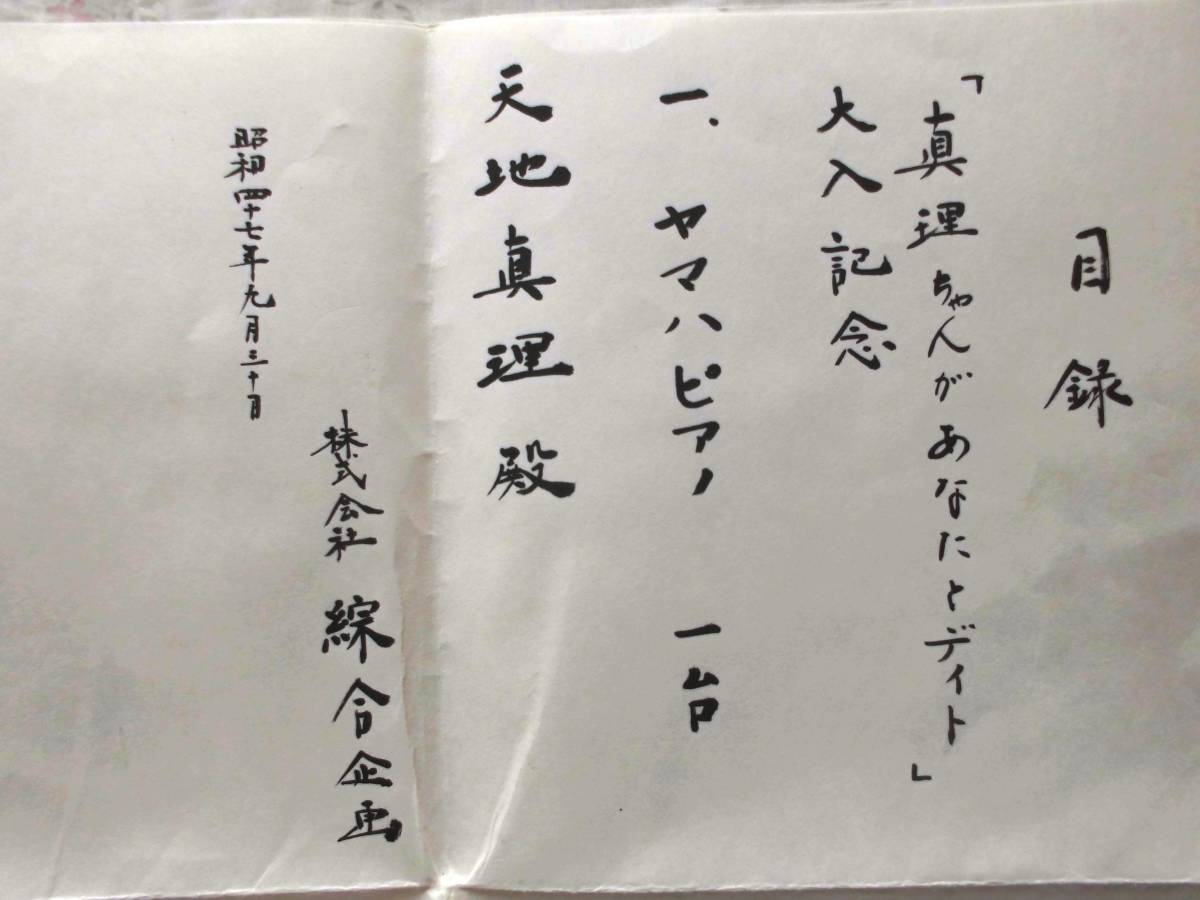 目録
「真理ちゃんがあなたとデイト」
大入記念
一、ヤマハピアノ 一台
天地真理殿
株式会社 綜合企画
昭和四十七年九月三十日